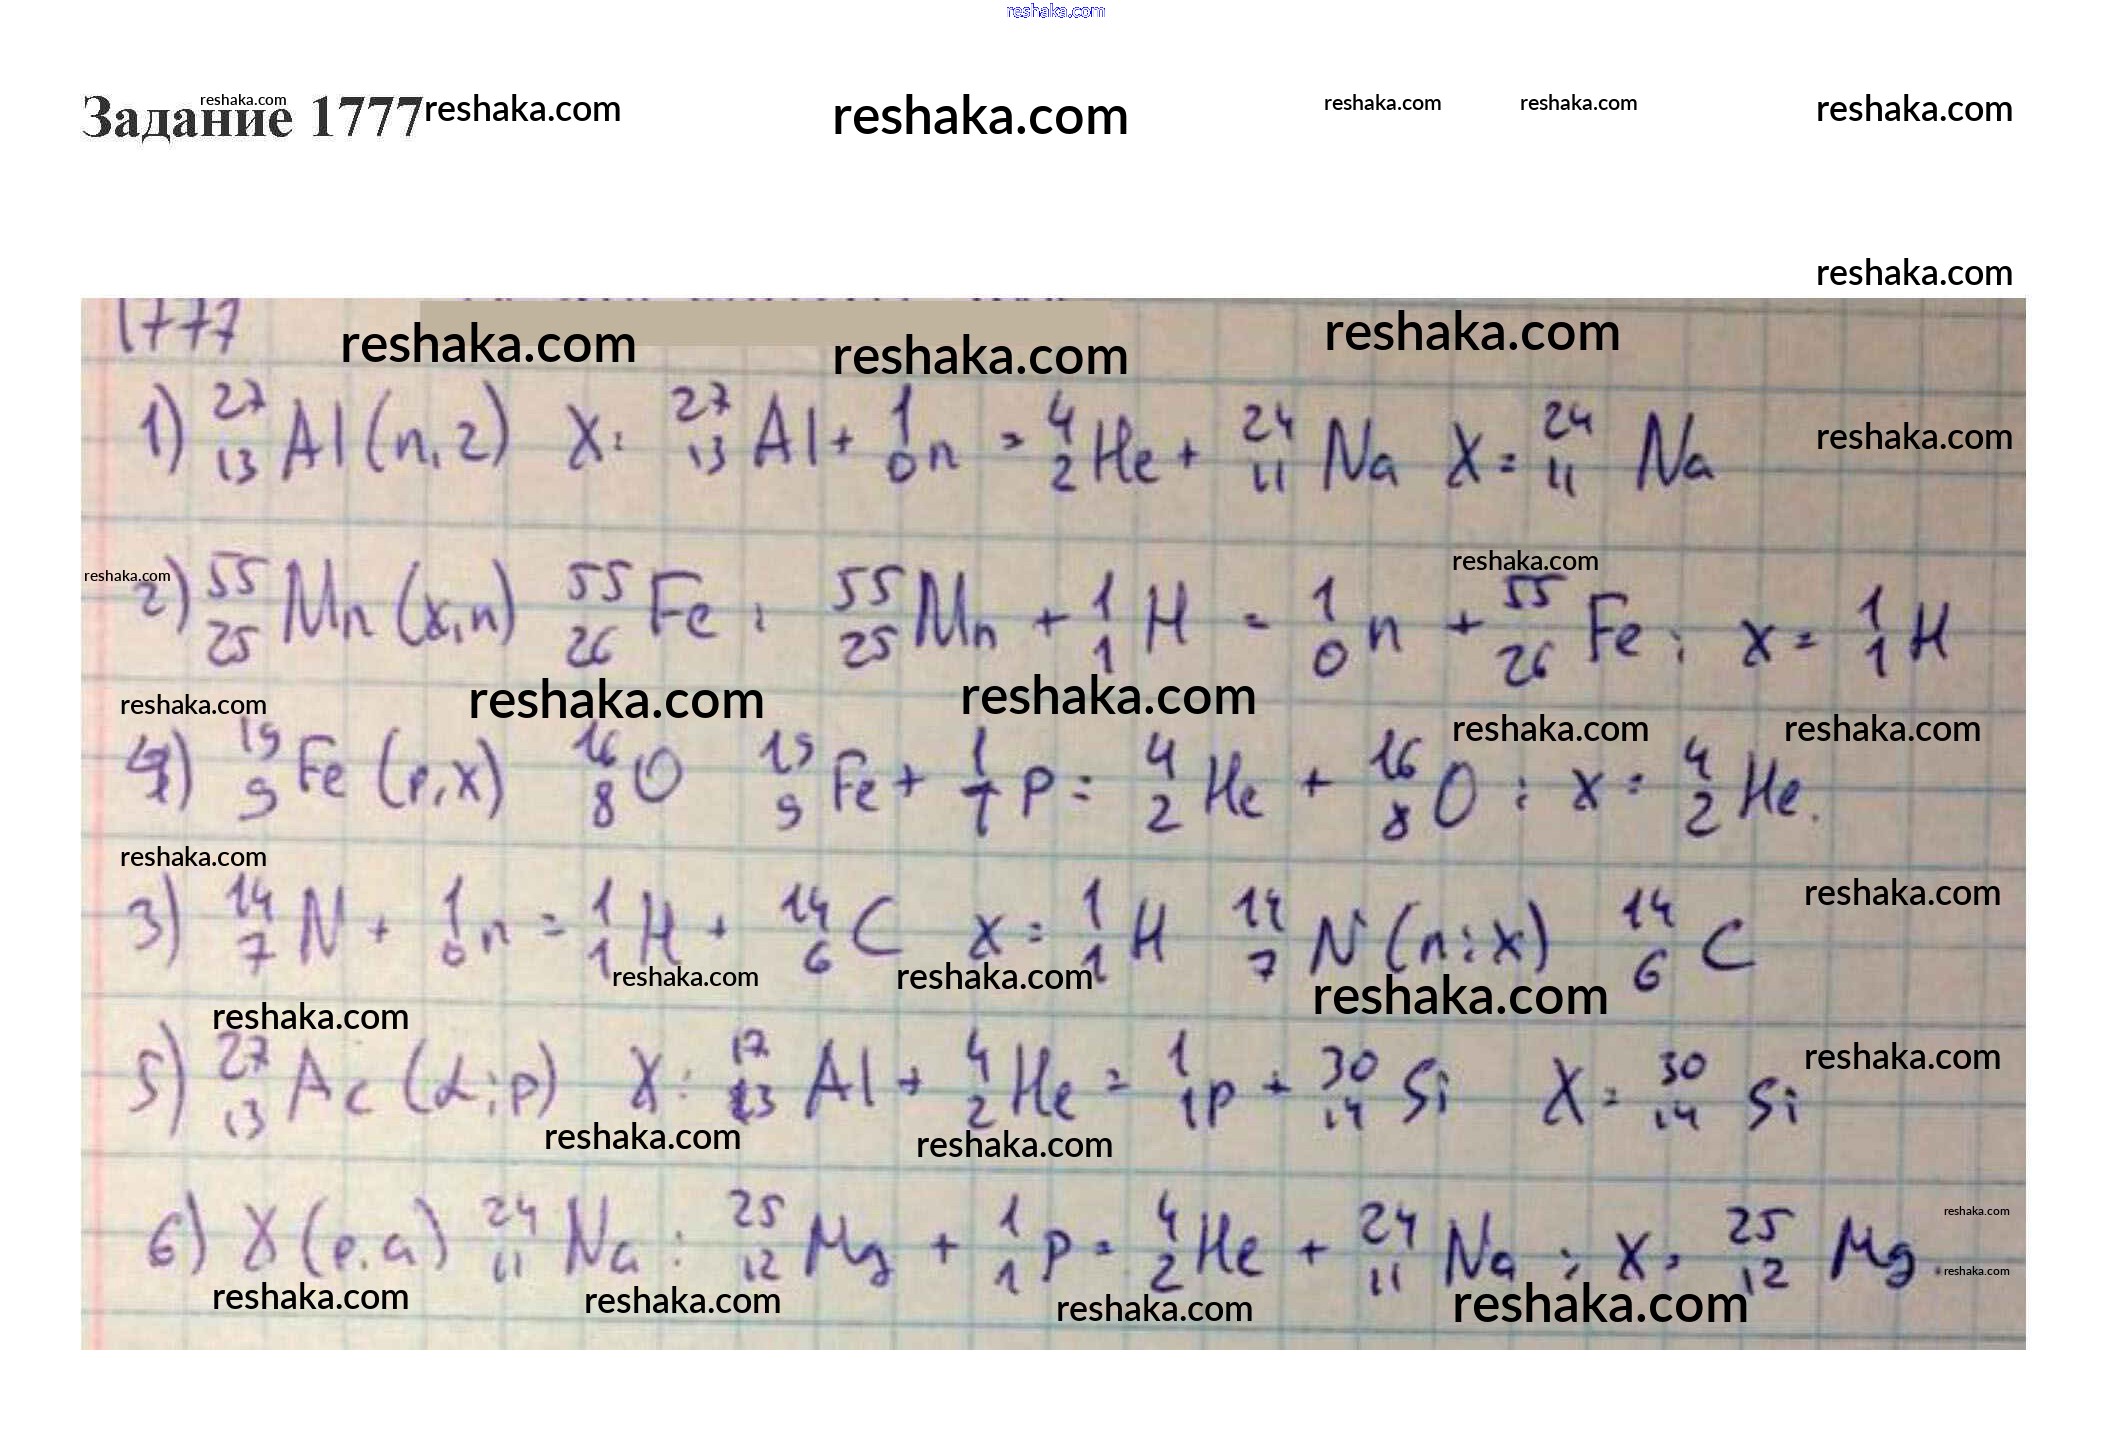 reshaka.com
Задание 1777 reshaka.com reshaka.com reshaka.com reshaka.com reshaka.com reshaka.com
reshaka.com
1777
reshaka.com reshaka.com reshaka.com
1) ²⁷₁₃Al (n, 2) X: ²⁷₁₃Al + ¹₀n = ⁴₂He + ²⁴₁₁Na X = ²⁴₁₁Na
reshaka.com
reshaka.com reshaka.com
2) ⁵⁵₂₅Mn (x, n) ⁵⁵₂₆Fe ; ⁵⁵₂₅Mn + ¹₁H = ¹₀n + ⁵⁵₂₆Fe ; x = ¹₁H
reshaka.com reshaka.com reshaka.com reshaka.com reshaka.com
4) ¹⁹₉Fe (p, x) ¹⁶₈O ¹⁹₉Fe + ¹₁p = ⁴₂He + ¹⁶₈O ; x = ⁴₂He.
reshaka.com reshaka.com
3) ¹⁴₇N + ¹₀n = ¹₁H + ¹⁴₆C x = ¹₁H ¹⁴₇N (n ; x) ¹⁴₆C
reshaka.com reshaka.com reshaka.com
reshaka.com reshaka.com
5) ²⁷₁₃Ac (α ; p) X: ¹⁷₁₃Al + ⁴₂He = ¹₁p + ³⁰₁₄Si X = ³⁰₁₄Si
reshaka.com reshaka.com
reshaka.com
6) X (p, a) ²⁴₁₁Na : ²⁵₁₂Mg + ¹₁p = ⁴₂He + ²⁴₁₁Na ; X = ²⁵₁₂Mg.
reshaka.com
reshaka.com reshaka.com reshaka.com reshaka.com